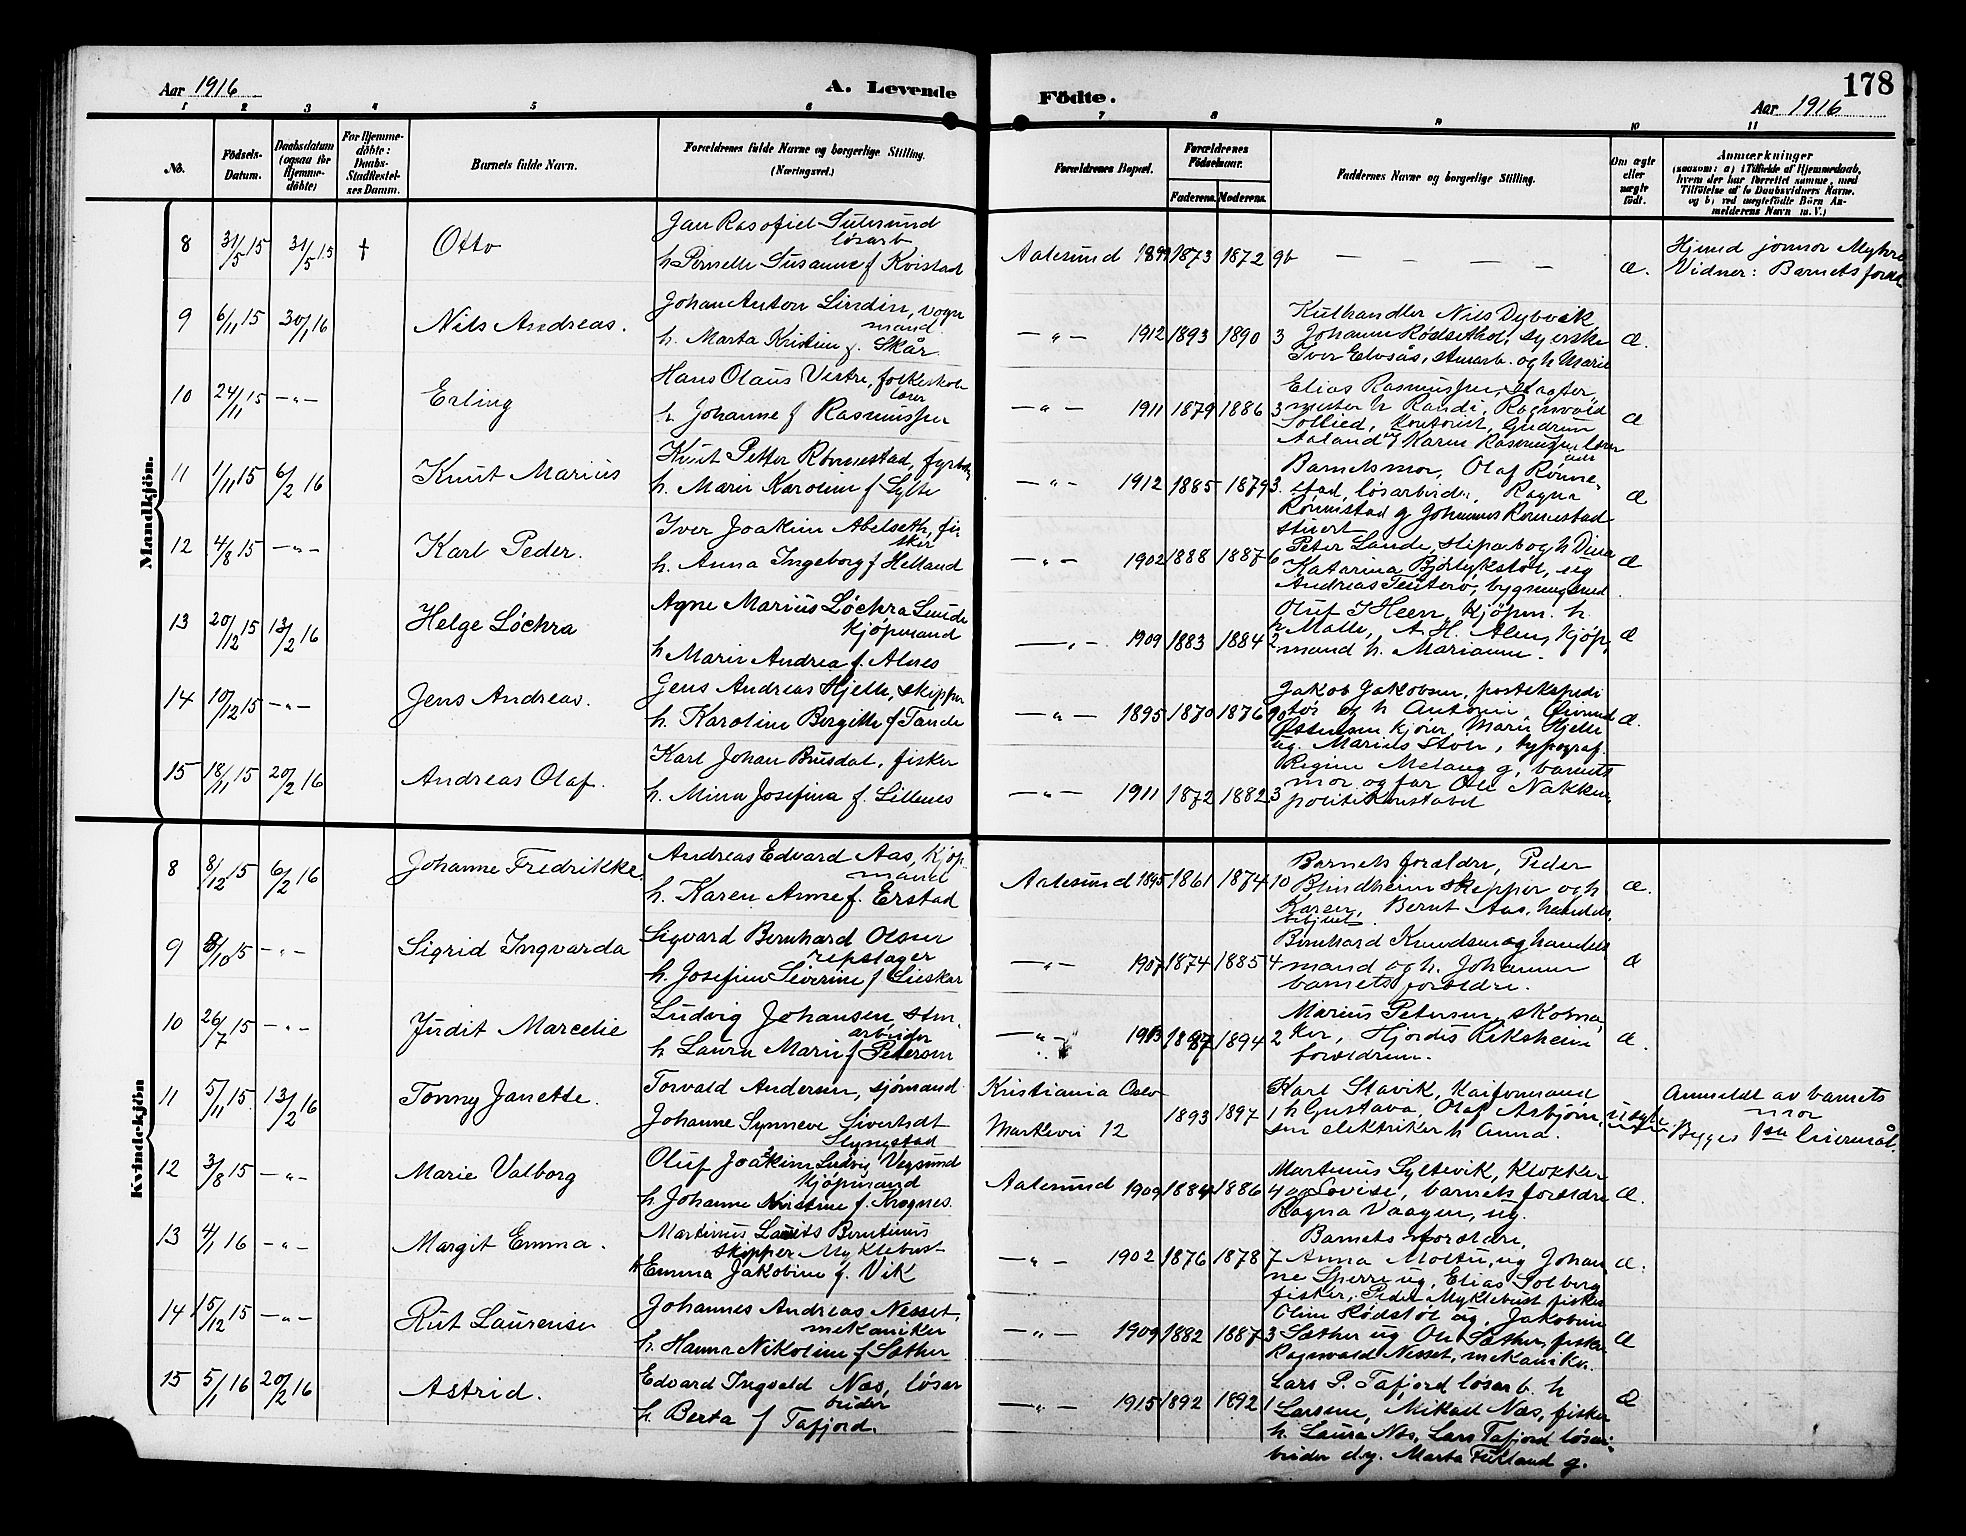 Aar 1916
A. Levende
Födte.
178
Aar 1916
1 2 3 4 5 6 7 8 9 10 11
No.
Födsels-Datum.
Daabsdatum (ogsaa for Hjemme-döbte)
For Hjemme-döbte: Daabs-Stadfestel-ses Datum.
Barnets fulde Navn.
Forældrenes fulde Navne og borgerlige Stilling. (Næringsvei.)
Forældrenes Bopæl.
Forældrenes Födselsaar.
Faderens. Moderens.
Faddernes Navne og borgerlige Stilling.
Om ægte eller uægte födt.
Anmærkninger
(saasom: a) i Tilfælde af Hjemmedaab, hvem der har forrettet samme, med Tilföielse af to Daabsvidners Navne. og b) ved uægtefödte Börn Anmelderens Navn m. V.)
Mandkjön.
8 31/5 15 31/5 15 † Otto
Jan Rasofiel Sulesund
løsarb
h Pernelle Susanne f Kvistad
Aalesund 1899 1873 1872 9b — — — — Æ.
Hjemd jormor Myhre
Vidner: Barnets foræl
9 6/11 15 30/1 16 Nils Andreas.
Johan Anton Lindin, vogn
mand
h. Marta Kristine f. Skår.
— „ — 1912 1893 1890 3
Kulhandler Nils Dybvik
Johanne Rødsethol, syerske
Iver Elvsås, stuearb. og h Marie
Æ.
10 24/11 15 — „ — Erling
Hans Olaus Vestre, folkeskole
lærer
h. Johanne f Rasmussen
— „ — 1911 1879 1886 3
Elias Rasmussen, slagter
mester h Randi, Ragnvald
Sollied, kontorist, Gudrun
Aaland og Karen Rasmussen lærer
inde
Æ
11 1/11 15 6/2 16 Knut Marius
Knut Petter Rønnestad, fyrbøt
h. Marie Karoline f Sylte
— „ — 1912 1885 1879 3.
Barnets mor, Olaf Rønne-
stad, løsarbeider, Ragna
Rønnestad g Johannes Rønnestad
stuert
Æ
12 4/8 15 — „ — Karl Peder.
Iver Joakim Abelseth, fi
sker
h. Anna Ingeborg f Helland
— „ — 1902 1888 1887 6
Peter Lande, skiparb og h Dina
Katarina Bjørlykstøl, ug
Andreas Tenterø, bygningssned
Æ
13 20/12 15 13/2 16 Helge Løchra
Agne Marius Løchra Lunde
Kjöpmand
h Marie Andrea f. Alnes
— „ — 1909 1883 1884 2
Oluf I Heen, Kjöpm. h.
h Malle, A. H. Alnes, kjöp,
mand h. Marianne.
Æ
14 10/12 15 — „ — Jens Andreas.
Jens Andreas Hjelle, skipper
h. Karoline Bergitte f Tande
— „ — 1895 1870 1876 90
Jakob Jakobsen, postekspedi
tør og h Antonie, Eivind
Østensen kjører, Marie Hjelle
ug. Marius Stoen, typograf.
Æ.
15 18/11 15 20/2 16 Andreas Olaf.
Karl Johan Brusdal, fisker
h. Mina Josefina f. Lillenes
— „ — 1911 1872 1882 3
Regine Melang g, barnets
mor og far Ole Nakken
politikonstabel
Kvindekjön
8 8/12 15 6/2 16 Johanne Fredrikke.
Andreas Edvard Aas, kjøp.
mand
h. Karen Anne f. Erstad
Aalesund 1895 1861 1874 10
Barnets forældre, Peder
Blindheim skipper og h
Karen, Bernt Aas, handels
betjent
Æ.
9 8/10 15 — „ — Sigrid Ingvarda
Sigvard Bernhard Olsen
repslager
h. Josefine Severine f Lieskar
— „ — 1907 1874 1885 4
Bernhard Knudsen og handels
mand og h. Johanne
barnets forældre.
Æ
10 26/7 15 — „ — Judit Marcelie
Ludvig Johansen, sten.
arbeider
h Laura Marie f Petersen
— „ — 1913 1887 1894 2
Marius Petersen, skoma,
ker, Hjørdis Riksheim
forældrene.
Æ.
11 5/11 15. 13/2 16 Tonny Janette.
Torvald Andersen, sjømand
Johanne Synneve Siverhdt
Slyngstad
Kristiania Oslo
Markvei 12
1893 1897 1
Karl Slavik, Kaiformand
h Gustava, Olaf Asbjørn,
sen elektriker h Anna.
uægte
Anmeldt av barnets
mor
Begges 1ste leiermål.
12 3/8 15 — „ — Marie Valborg
Oluf Joakim Ludvig Vegsund
kjöpmand
h Johanne Kristine f. Krognes.
Aalesund 1909 1884 1886 4
Martinus Syltevik, Klokker
og Lovise, barnets forældre
Ragna Vaagen, ug.
Æ.
13 4/1 16 — „ — Margit Emma.
Martinus Laurits Berntinus
skipper Myklebust
h Emma Jakobine f. Vik
— „ — 1902 1876 1878 7
Barnets forældre,
Anna Moltu, ug Johan
ne Sperre ug, Elias Solberg
fisker, Peder Myklebust fisker
Æ.
14 15/12 15 — „ — Rut Laurense
Johannes Andreas Nesset,
mekaniker
h. Hanna Nikoline f Sæther
— „ — 1909 1882 1887 3
Oline Rødstøl ug, Jakobine
Sæther ug Ole Sæther, fisker
Ragnvald Nesset, mekaniker.
Æ
15 5/1 16 20/2 16 Astrid.
Edvard Ingvald Næs, løsar
beider
h. Berta f Tafjord.
— „ — 1915 1892 1892 1
Lars P. Tafjord løsarb. h
Larsine, Mikall Næs, fisker
h. Laura Næs, Lars Tafjord løsar-
beider d.y. Marta Fikland g.
Æ